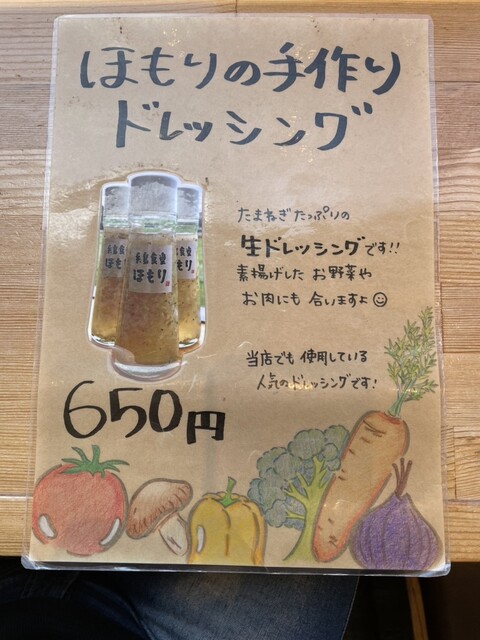 ほもりの手作り
ドレッシング
たまねぎたっぷりの
生ドレッシングです!!
素揚げした お野菜や
お肉にも 合いますよ☺
当店でも 使用している
人気のドレッシングです!
食堂
ほもり
650円